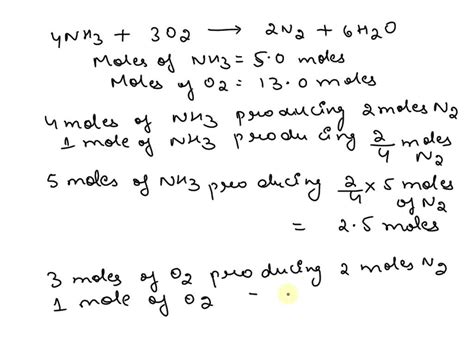 4NH3 + 3O2 ⟶ 2N2 + 6H2O
Moles of NH3 = 5.0 moles
Moles of O2 = 13.0 moles
4 moles of NH3 producing 2 moles N2
1 mole of NH3 producing 2/4 moles N2
5 moles of NH3 producing 2/4 x 5 moles of N2
= 2.5 moles
3 moles of O2 producing 2 moles N2
1 mole of O2 -